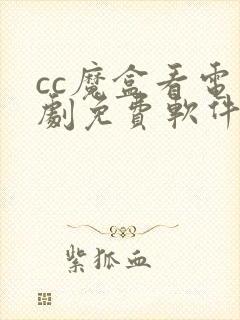 cc魔盒看電
劇免費軟件
紫狐血